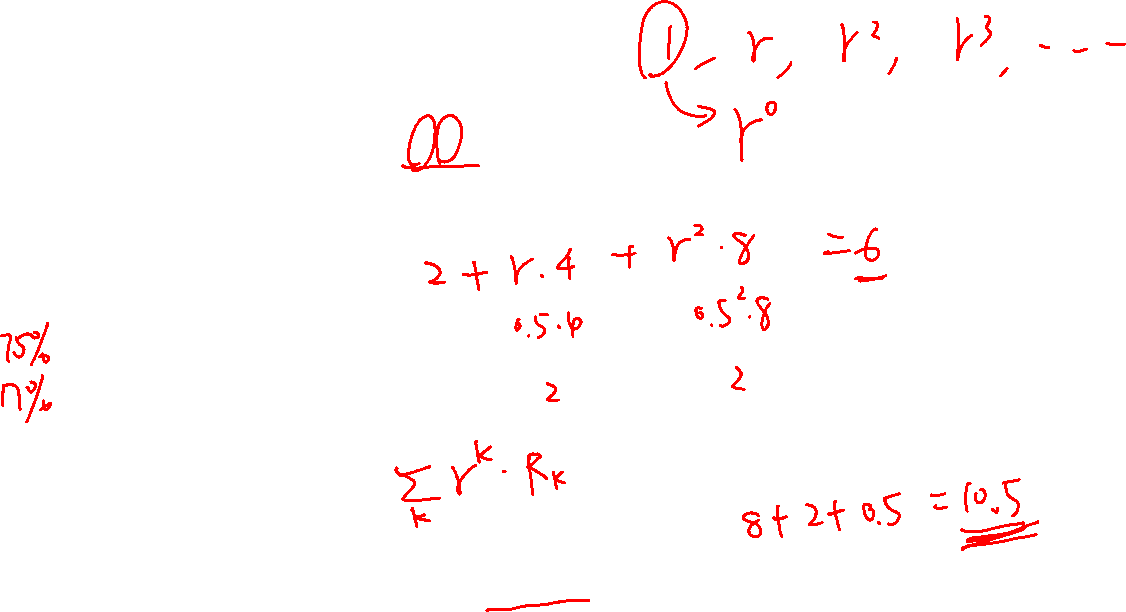 1, r, r², r³, ---
r⁰
00
2 + r.4 + r².8 = 6
0.5.6 0.5².8
75%
n%
2 2
∑ₖ rᵏ. Rₖ
8+2+0.5 = 10.5